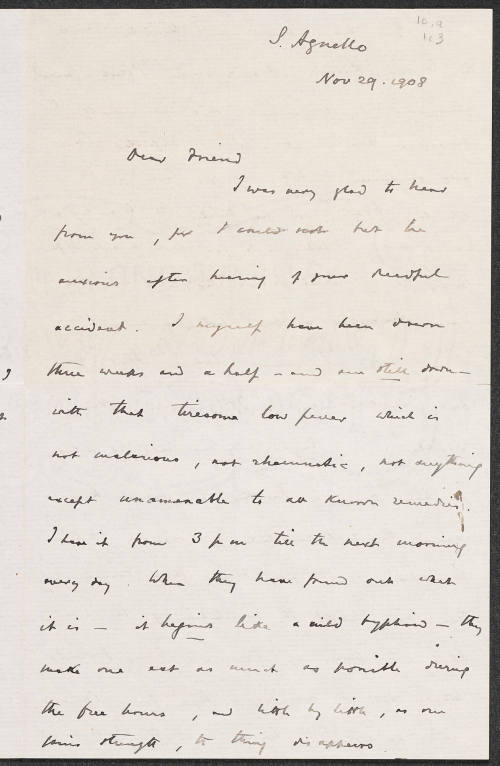 S. Agnello
Nov 29. 1908
Dear Friend
I was very glad to hear
from you, for I could not but be
anxious after hearing of your dreadful
accident. I myself have been down
three weeks and a half – and am still down –
with that tiresome low fever which is
not malarious, not rheumatic, not anything
except unamenable to all known remedies.
I have it from 3 p m till the next morning
every day. When they have found out what
it is – it begins like a mild typhoid – they
make one eat as much as possible during
the free hours, and little by little, as one
gains strength, the thing disappears.